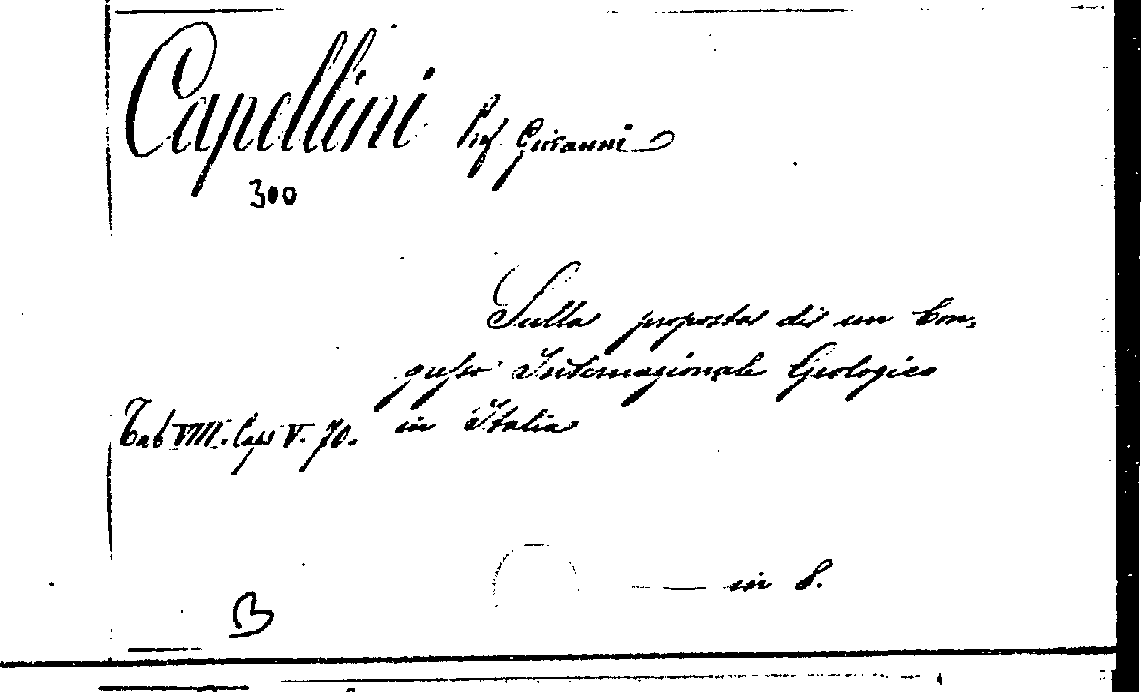 Capellini Prof Giovanni
300
Sulla proposta di un Con,
gresso Internazionale Geologico
in Italia
Tab VIII. Caps V. 70.
in 8.
B